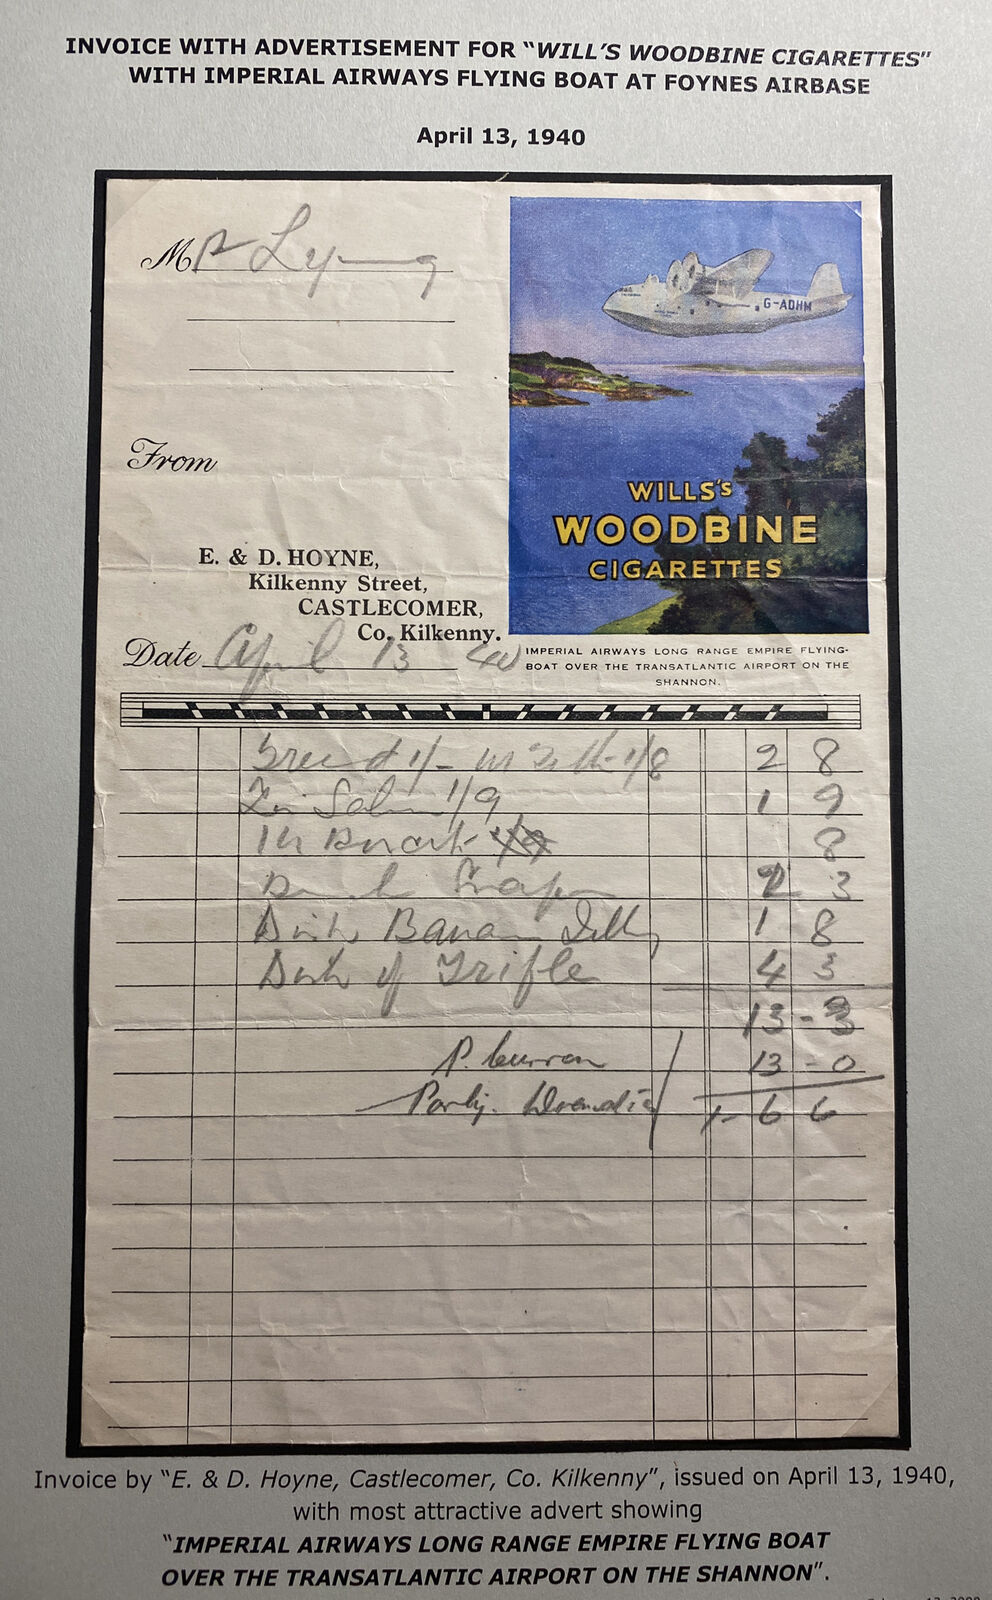 INVOICE WITH ADVERTISEMENT FOR "WILL'S WOODBINE CIGARETTES"
WITH IMPERIAL AIRWAYS FLYING BOAT AT FOYNES AIRBASE
April 13, 1940
M
From
E. & D. HOYNE,
Kilkenny Street,
CASTLECOMER,
Co. Kilkenny.
Date April 13 40
G-ADHM
WILLS's
WOODBINE
CIGARETTES
IMPERIAL AIRWAYS LONG RANGE EMPIRE FLYING-
BOAT OVER THE TRANSATLANTIC AIRPORT ON THE
SHANNON.
1/- 1/8 2 8
1/9 1 9
8
3
Banana 1 8
of Trifle 4 3
13 - 3
P. Curran 13 - 0
1 - 6 6
Invoice by "E. & D. Hoyne, Castlecomer, Co. Kilkenny", issued on April 13, 1940,
with most attractive advert showing
"IMPERIAL AIRWAYS LONG RANGE EMPIRE FLYING BOAT
OVER THE TRANSATLANTIC AIRPORT ON THE SHANNON".